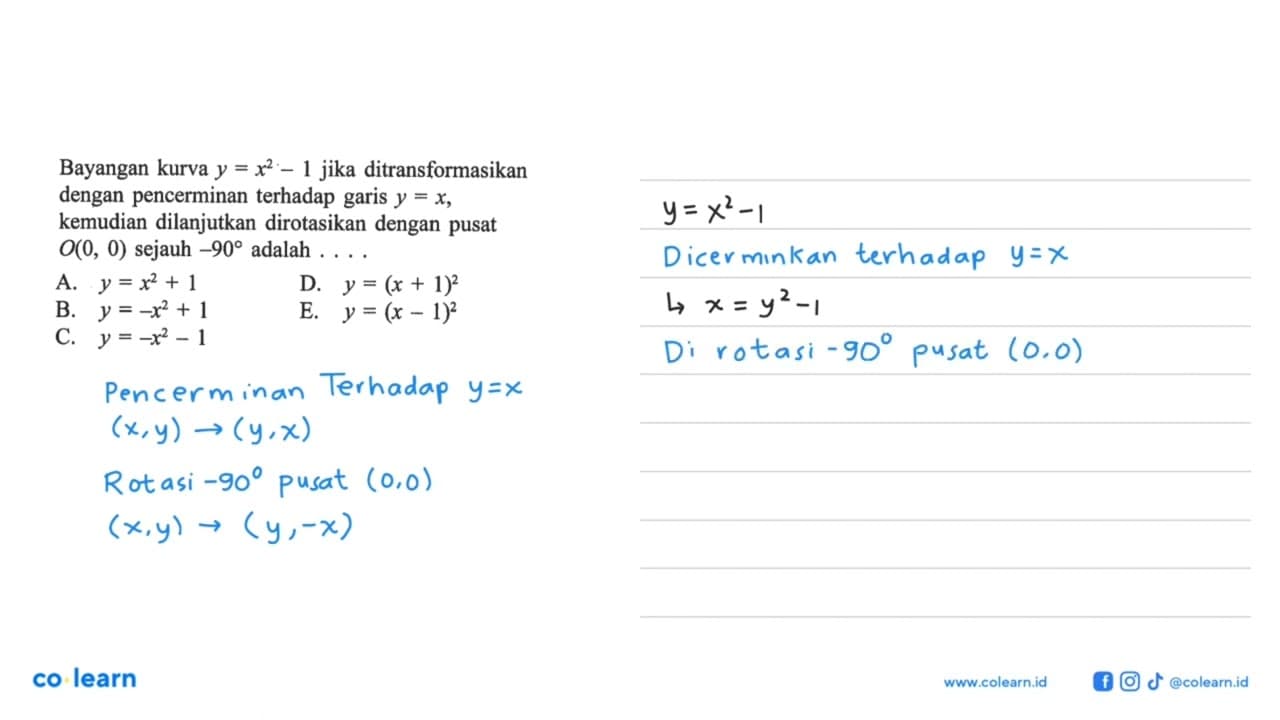 Bayangan kurva y = x² – 1 jika ditransformasikan
dengan pencerminan terhadap garis y = x,
kemudian dilanjutkan dirotasikan dengan pusat
O(0, 0) sejauh –90° adalah . . . .
A. y = x² + 1 D. y = (x + 1)²
B. y = –x² + 1 E. y = (x – 1)²
C. y = –x² – 1
Pencerminan Terhadap y=x
(x,y) → (y,x)
Rotasi -90° pusat (0,0)
(x,y) → (y,-x)
y = x² -1
Dicerminkan terhadap y=x
↳ x = y² -1
Di rotasi -90° pusat (0,0)
co learn
www.colearn.id
@colearn.id